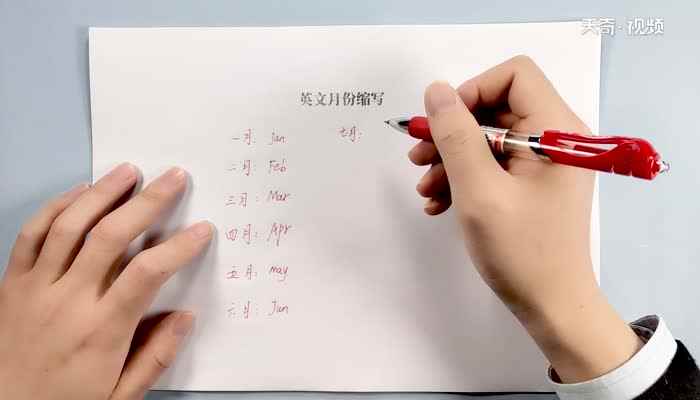 天奇·视频
英文月份缩写
一月: Jan
二月: Feb
三月: Mar
四月: Apr
五月: may
六月: Jun
七月: